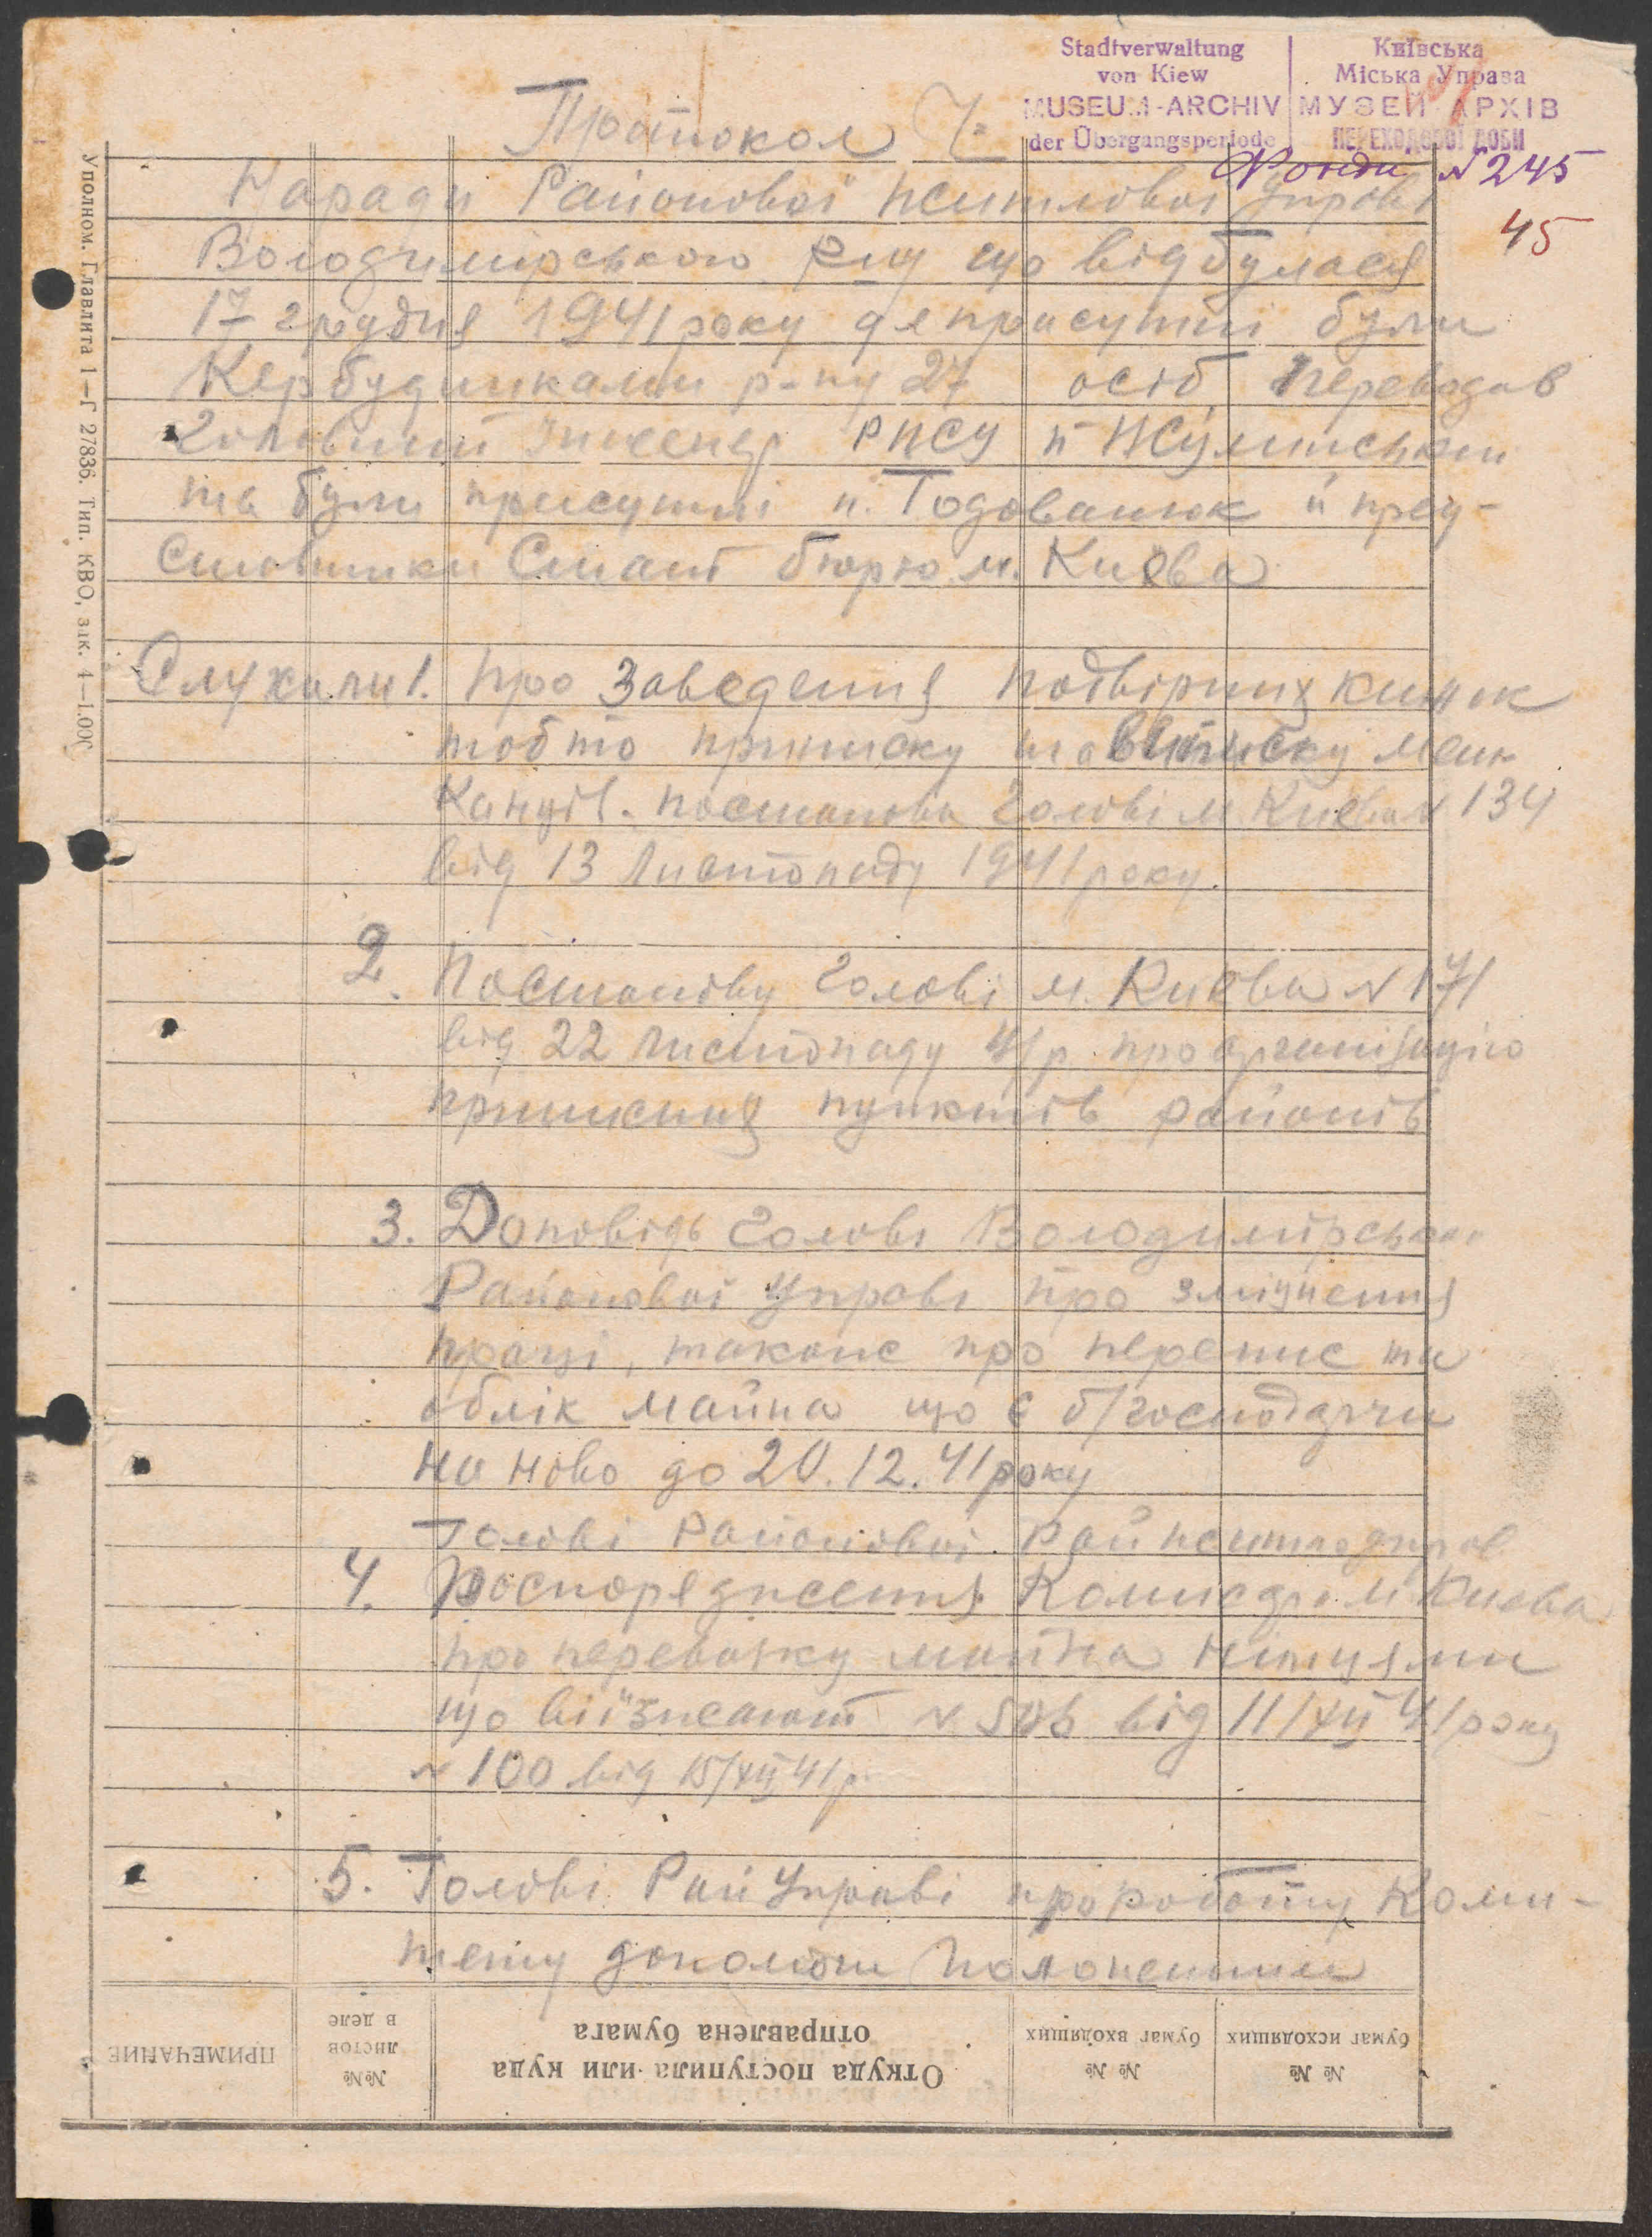 Stadtverwaltung
von Kiew
MUSEUM-ARCHIV
der Übergangsperiode
Київська
Міська Управа
МУЗЕЙ-АРХІВ
ПЕРЕХОДОВОЇ ДОБИ
Фонди N 245
45
Протокол
Наради Районової Житлової Управі
Володимірського р-ну що відбулася
17 грудня 1941 року де присутні були
Кербудинками р-ну 27 осіб. Переводав
Головний Інженер РЖСУ п Жулинський
та були присутні п. Годованюк й пред-
ставники Стат бюро м. Києва
Слухали 1. Про Заведення подвірних книжок
тобто приписку та виписку меш-
канців. постанова Голові м Києва N 134
від 13 Листопаду 1941 року.
2. Постанову Голові м. Києва N 171
від 22 листопаду 41 р. про организацію
пунктів районів
3. Доповідь Голові Володимірської
Районової Управі про зміцнення
праці, також про перепис та
облік майна що є б/господарчи
на ново до 20.12.41 року
Голові Районової
4. Роспорядження Комисара м Києва
про перевозку майна німцями
що виїзжают N 506 від 11/XII 41 року
N 100 від 15/XII 41 р.
5. Голові Рай Управі про роботу Коми-
тету допомоги полоненним
ПРИМЕЧАНИЕ
№№
листов
в деле
Откуда поступила или куда
отправлена бумага
№ №
бумаг входящих
№ №
бумаг исходящих
Уполном. Главлита 1—Г 27836. Тип. КВО, зак. 4—1.000